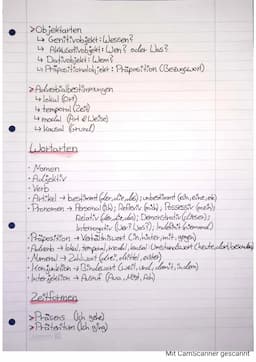 > Objektarten
↳ Genitivobjekt: Wessen?
↳ Akkusativobjekt: Wen? oder Was?
↳ Dativobjekt: Wem?
↳ Präpositionalobjekt: Präposition (Bezugswort)
> Adverbialbestimmungen
↳ lokal (Ort)
↳ temporal (Zeit)
↳ modal (Art & Weise)
↳ kausal (Grund)
Wortarten
· Nomen
· Adjektiv
· Verb
· Artikel → bestimmt (der, die, das); unbestimmt (ein, eine)
· Pronomen → Personal (ich); Reflexiv (mich); Possessiv (mein);
Relativ (der, die, das); Demonstrativ (dieser);
Interrogativ (Wer? Was?); Indefinit (niemand)
· Präposition → Verhältniswort (in, hinter, mit, gegen)
· Adverb → lokal, temporal, modal, kausal Umstandswort (heute, dort, besonders)
· Numeral → Zahlwort (drei, dritter, erster)
· Konjunktion → Bindewort (weil, und, damit, indem)
· Interjektion → Ausruf (Puuh, Mist, Ah)
Zeitformen
> Präsens (Ich gehe)
> Präteritum (Ich ging)
Mit CamScanner gescannt